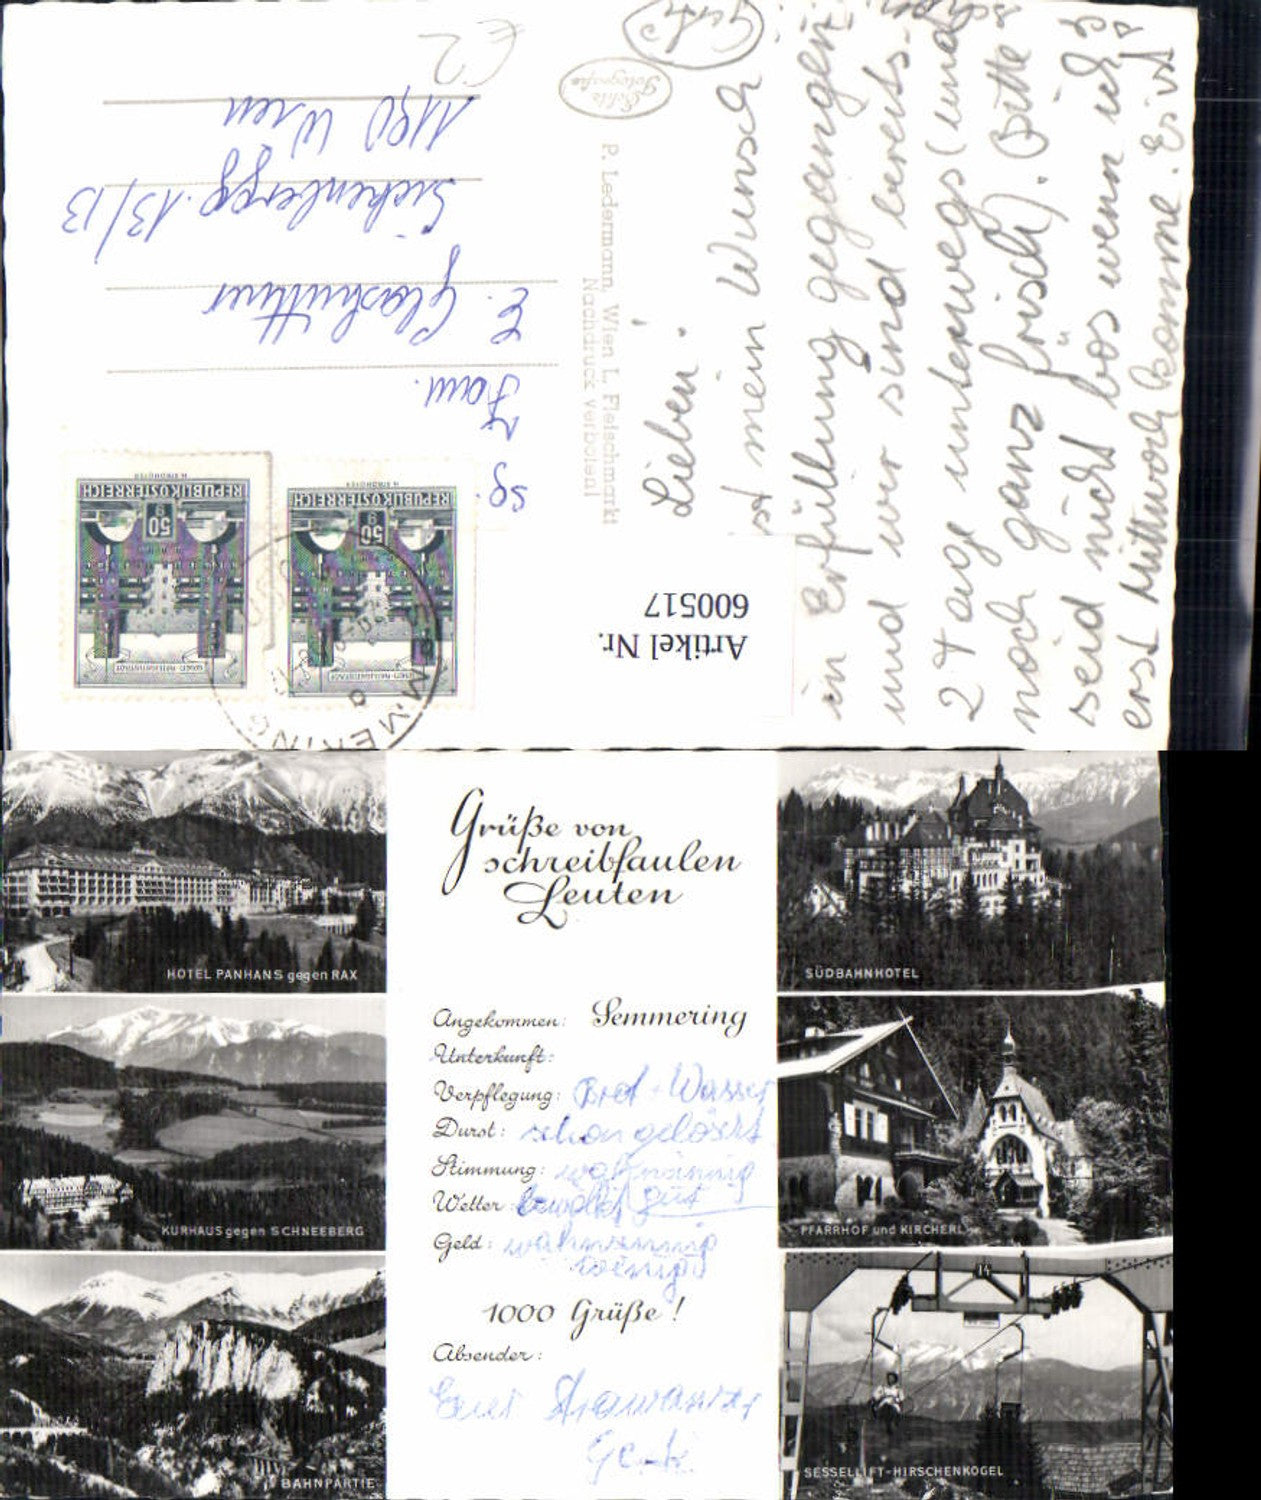 €2
1190 Wien
13/13
E. Glashüttner
Fam.
Sg.
P. Ledermann, Wien I., Fleischmarkt
Nachdruck verboten!
REPUBLIK ÖSTERREICH
50 g
REPUBLIK ÖSTERREICH
50 g
SEMMERING
Artikel Nr.
600517
Lieben!
ist mein Wunsch
in Erfüllung gegangen
und wir sind bereits
2 Tage unterwegs (und
noch ganz frisch). Bitte
seid nicht bös wenn ich
erst Mittwoch komme.
HOTEL PANHANS gegen RAX
KURHAUS gegen SCHNEEBERG
BAHNPARTIE
Grüße von
schreibfaulen
Leuten
Angekommen: Semmering
Unterkunft:
Verpflegung: Brot + Wasser
Durst: schon gelöscht
Stimmung: wahnsinnig
Wetter: gut
Geld: wahnsinnig
wenig
1000 Grüße!
Absender:
Gerti
SÜDBAHNHOTEL
PFARRHOF und KIRCHERL
14
SESSELLIFT-HIRSCHENKOGEL